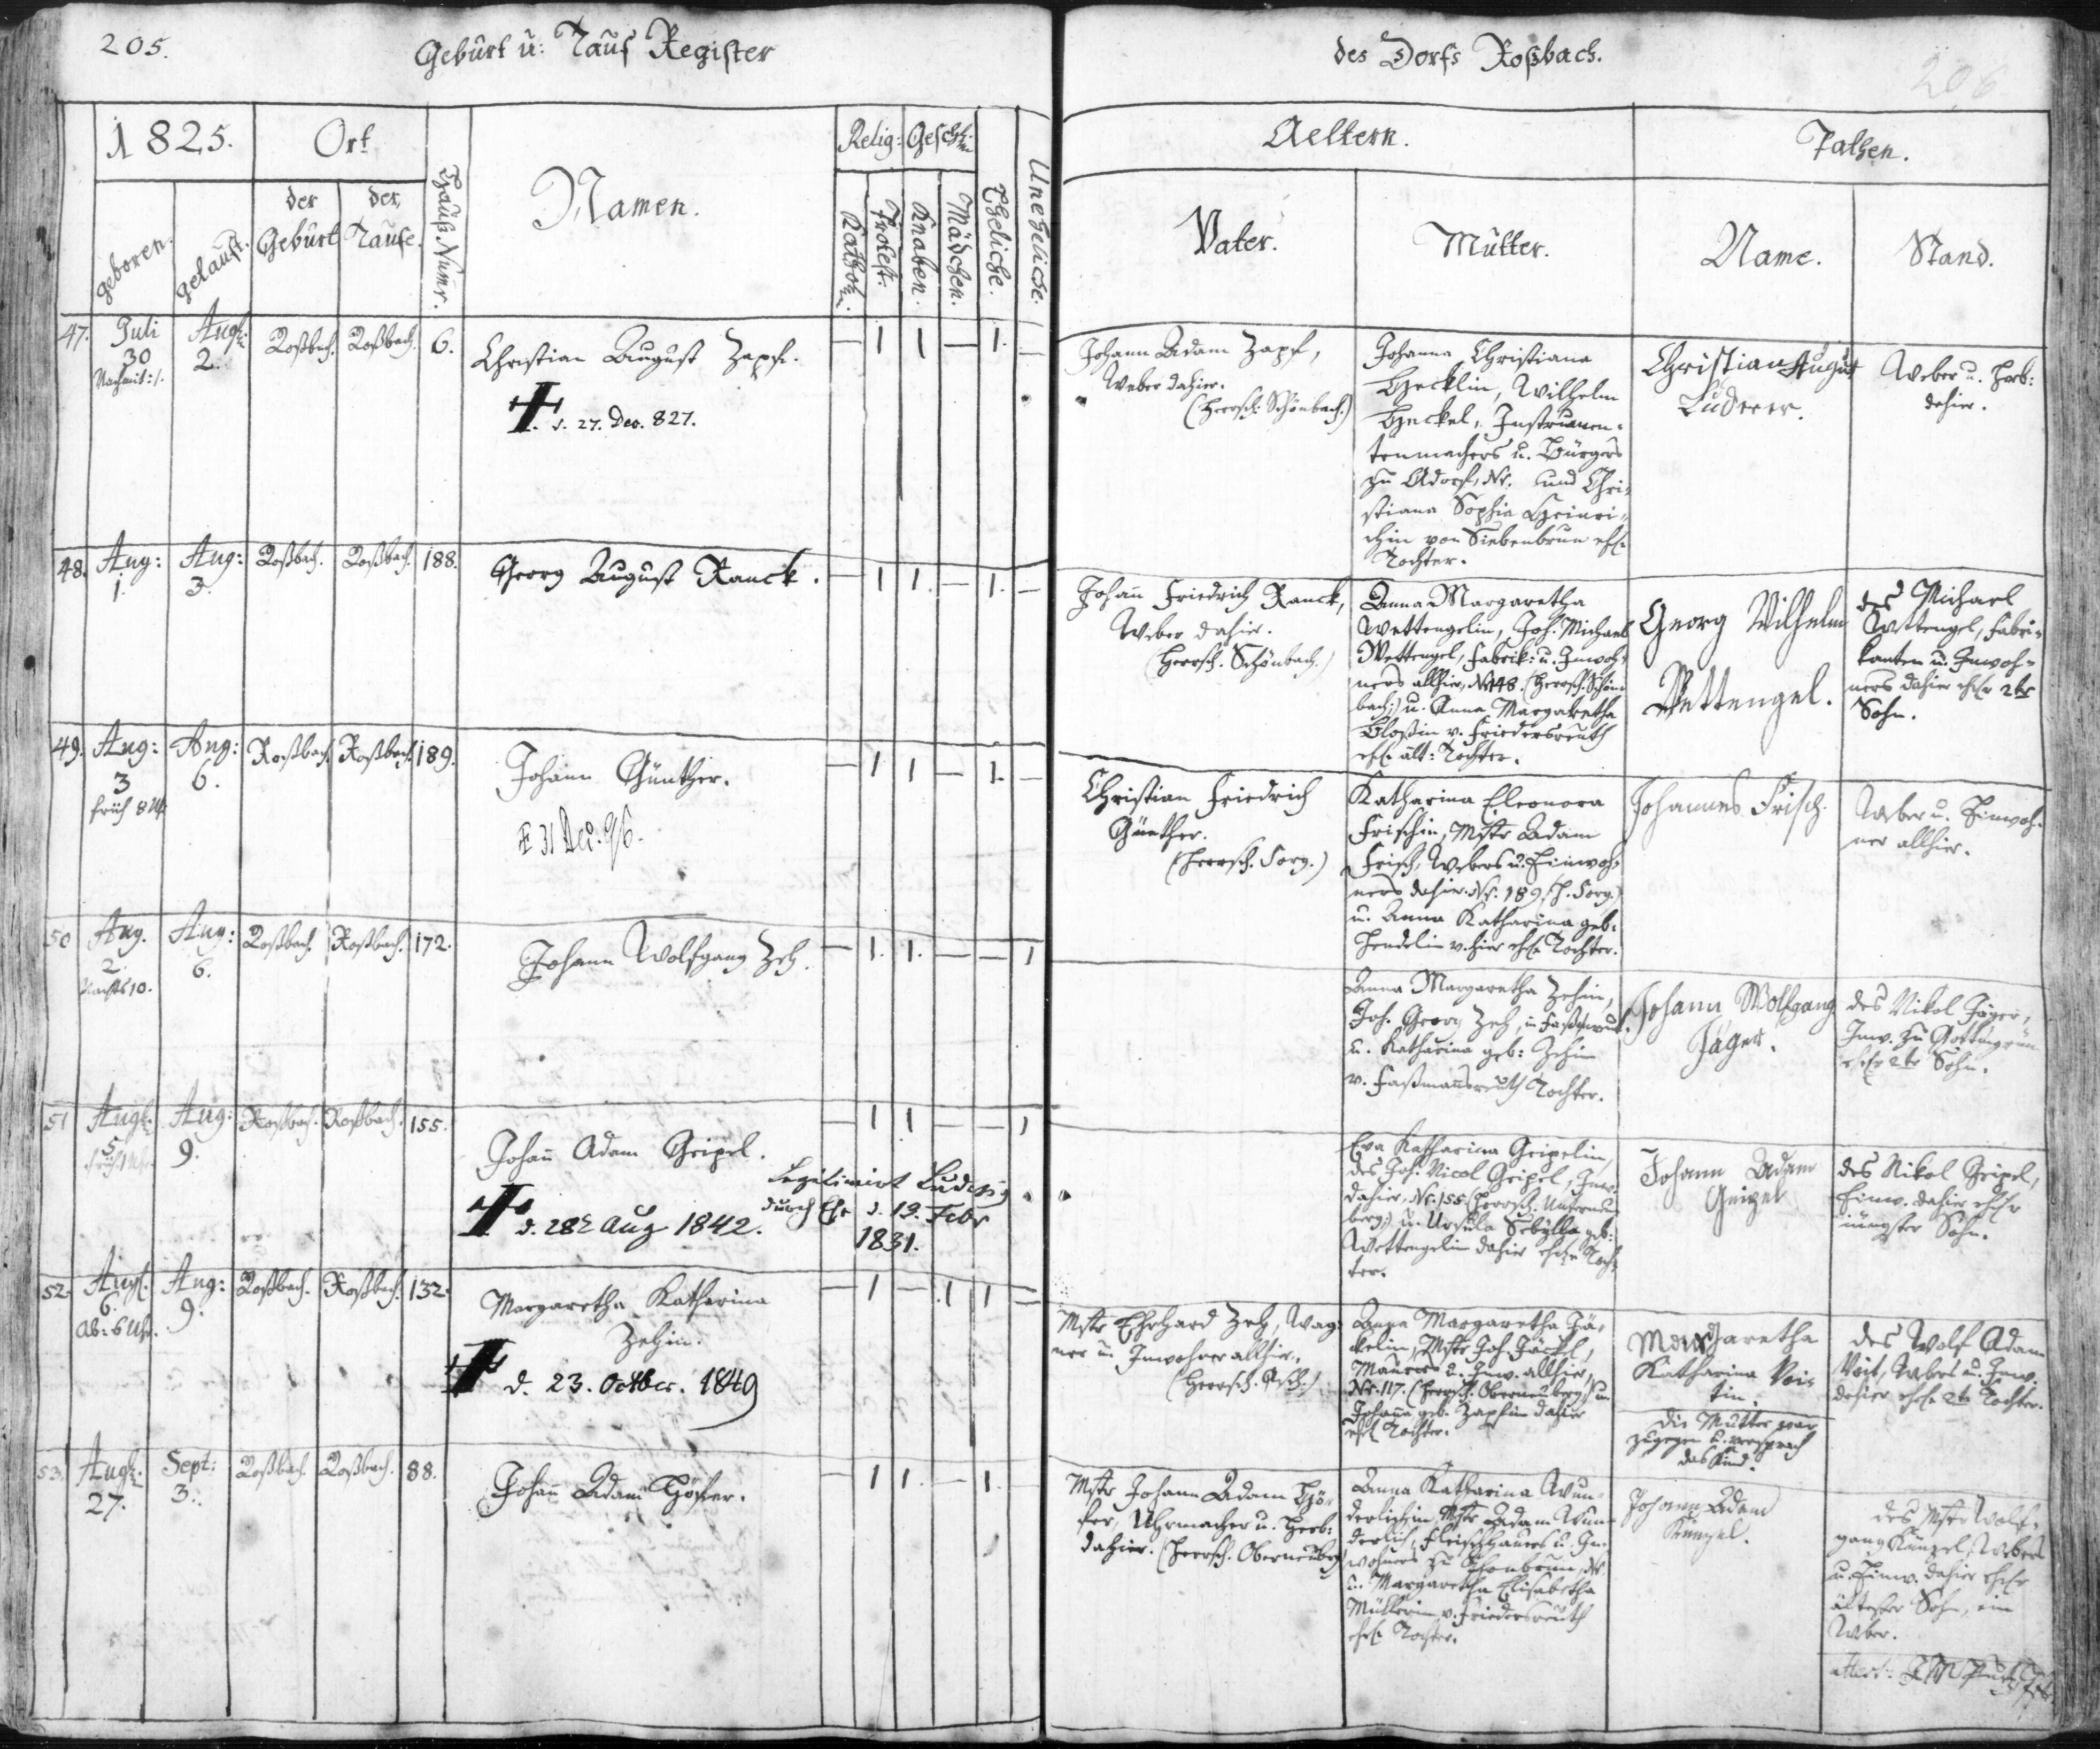 205.
Geburt u: Tauf Register
des Dorfs Roßbach.
206
1825.
Ort
der Geburt
der Taufe.
geboren.
getauft.
Hauß Numr.
Namen.
Relig:
Geschl.
Kathol.
Protest.
Knaben.
Mädchen.
Eheliche.
Uneheliche.
Aeltern.
Pathen.
Vater.
Mutter.
Name.
Stand.
47.
Juli
30
Nachmit: 1.
Aug:
2.
Roßbach.
Roßbach.
6.
Christian August Zapf.
d. 27. Dec. 827.
— 1 1 — 1. —
Johann Adam Zapf,
Weber dahier.
(Herrsch. Schönbach.)
Johanna Christiana
Heckelin, Wilhelm
Heckel, Instrumen-
tenmachers u. Bürgers
zu Adorf, Nr. und Chri-
stiana Sophia Heinri-
chin von Siebenbrun ehl.
Tochter.
Christian August
Luderer.
Weber u. Herb:
dahier.
48.
Aug:
1.
Aug:
3.
Roßbach.
Roßbach.
188.
Georg August Ranck.
— 1 1. — 1. —
Johann Friedrich Ranck,
Weber dahier.
(Herrsch. Schönbach.)
Anna Margaretha
Wettengelin, Joh. Michael
Wettengel, Fabrik: u. Inwoh-
ners allhier, Nr 148. (Herrsch. Schön-
bach;) u. Anna Margaretha
Bloßin v. Friedersreuth
ehl. ält: Tochter.
Georg Wilhelm
Wettengel.
des Michael
Wettengel, Fabri-
kanten u. Inwoh-
ners dahier ehl. 2tr
Sohn.
49.
Aug:
3
früh 8 Uhr
Aug:
6.
Roßbach.
Roßbach.
189.
Johann Günther.
31 Dez: 96.
— 1 1 — 1. —
Christian Friedrich
Günther.
(Herrsch. Sorg.)
Katharina Eleonora
Frischin, Mstr Adam
Frisch, Webers u. Einwoh-
ners dahier. Nr. 189. (H. Sorg.)
u. Anna Katharina geb.
Hendelin v. hier ehl. Tochter.
Johannes Frisch.
Weber u. Einwoh-
ner allhier.
50
Aug.
2.
Nachts 10.
Aug:
6.
Roßbach.
Roßbach.
172.
Johann Wolfgang Zeh.
— 1. 1. — — 1
Anna Margaretha Zehin,
Joh. Georg Zeh,
u. Katharina geb: Zehin
v. Faßmannsreuth Tochter.
Johann Wolfgang
Jäger.
des Nikol Jäger,
Inw. zu Gottmannsgrün
ehl. 2tr Sohn.
51
Aug:
5.
früh 1 Uhr
Aug:
9.
Roßbach.
Roßbach.
155.
Johann Adam Geipel.
Legitimirt
durch Ehe d. 13. Febr
1831.
d. 28t Aug 1842.
— 1 1 — — 1
Eva Katharina Geipelin,
des Joh. Nicol Geipel, Inw.
dahier, Nr. 155 (Herrsch. Unterneu-
berg;) u. Ursula Sebylla geb:
Wettengelin dahier ehl. Toch-
ter.
Johann Adam
Geipel
des Nikol Geipel,
Einw. dahier ehl.
jüngster Sohn.
52.
Aug:
6.
Ab: 6 Uhr.
Aug:
9.
Roßbach.
Roßbach.
132.
Margaretha Katharina
Zehin.
d. 23. Octbr. 1849
— 1 — 1 1 —
Mstr Ehrhard Zeh, Wag-
ner u. Inwohner allhier.
(Herrsch. Asch.)
Anna Margaretha Jä-
ckelin, Mstr Joh. Jäckel,
Maurers u. Inw. allhier,
Nr. 117. (Herrsch. Oberneuberg;) u.
Johanna geb. Zapfin dahier
ehl. Tochter.
Margaretha
Katharina Voi-
tin.
Die Mutter war
zugegen u. versprach
das Kind.
des Wolf Adam
Voit, Webers u. Inw.
dahier ehl. 2te Tochter.
53.
Aug:
27.
Sept:
3.
Roßbach.
Roßbach.
88.
Johann Adam Höfer.
— 1 1. — 1.
Mstr Johann Adam Hö-
fer, Uhrmacher u. Herb:
dahier. (Herrsch. Oberneuberg)
Anna Katharina Wun-
derlichin, Mstr Adam Wun-
derlich, Fleischhauers u. In-
wohners zu Thonbrun, Nr.
u. Margaretha Elisabetha
Müllerin v. Friedersreuth
ehl. Tochter.
Johann Adam
Künzel.
des Mstr Wolf-
gang Künzel, Webers
u. Einw. dahier ehl.
ältester Sohn, ein
Weber.